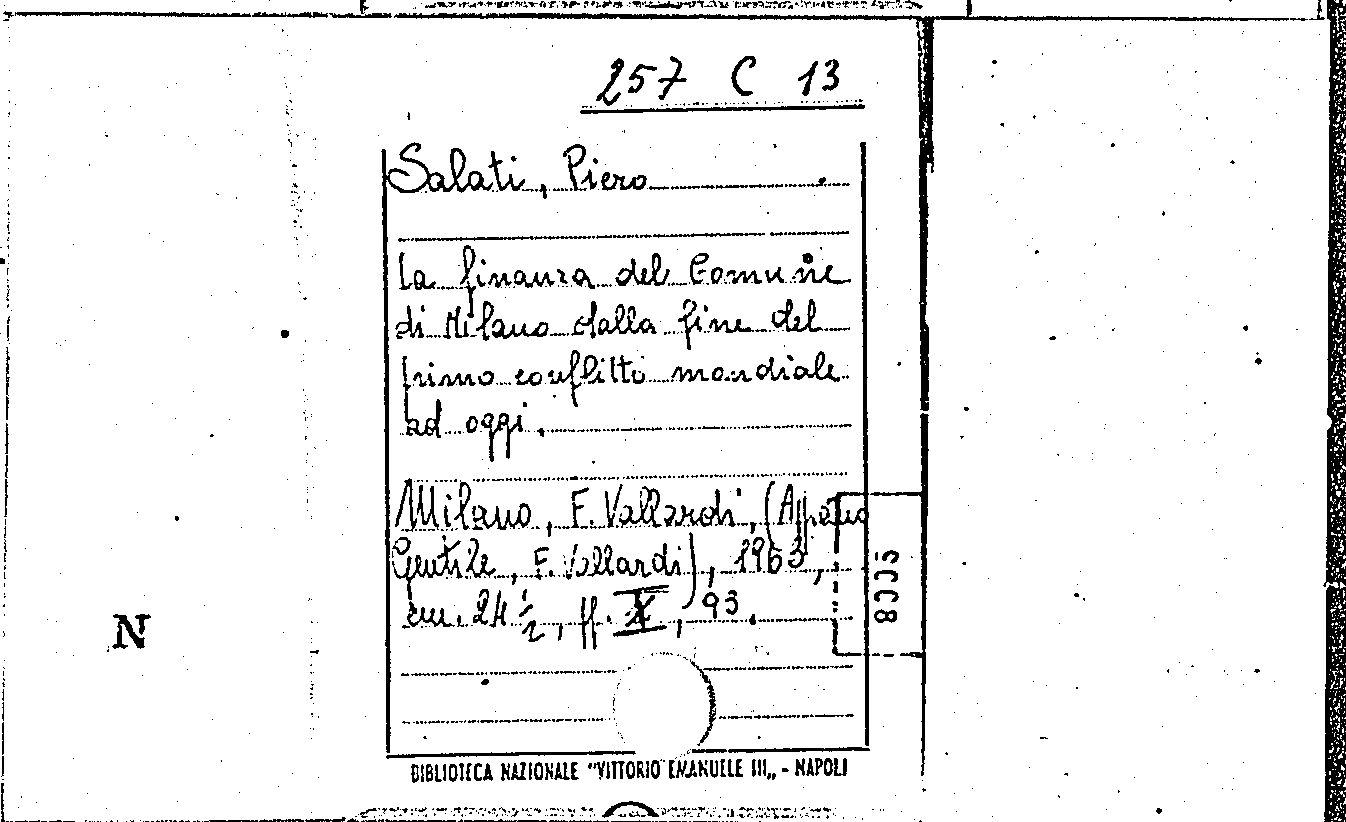 257 C 13
Salati, Piero
La finanza del Comune
di Milano dalla fine del
primo conflitto mondiale
ad oggi.
Milano, F. Vallardi, (Appiano
Gentile, F. Vallardi), 1963,
cm. 24 1/2, pp. X, 93.
N
BIBLIOTECA NAZIONALE "VITTORIO EMANUELE III„ - NAPOLI